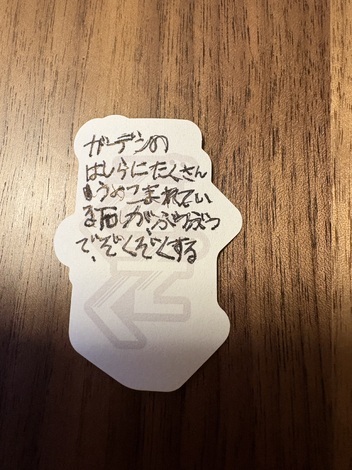 ガーデンの
はしらにたくさん
うめつこまれてい
る石が、ぶつぶつ
で、ぞくぞくする